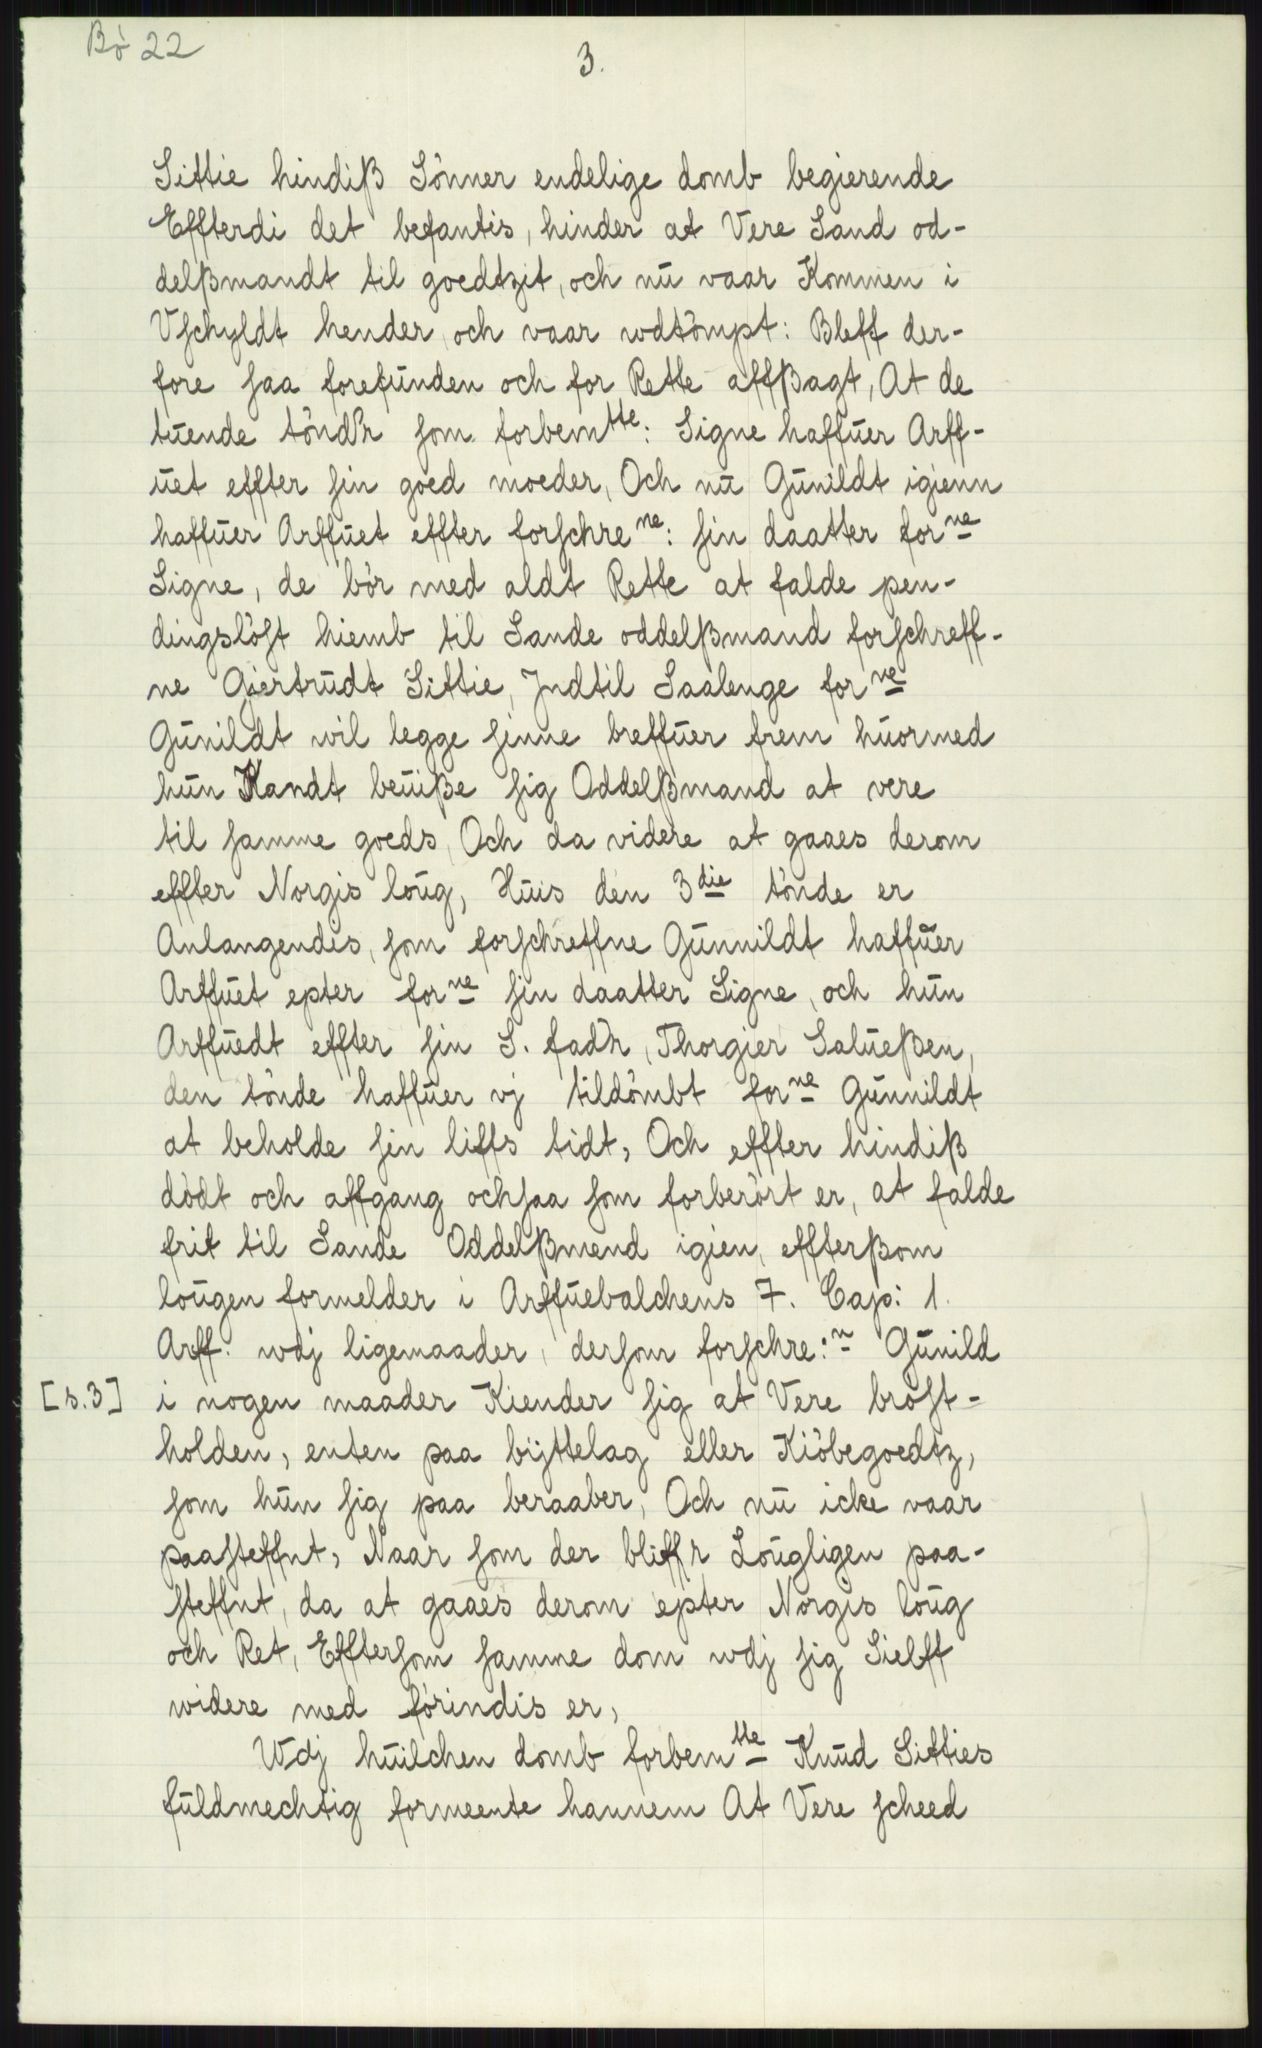 Bö 22
3.
Sittie hindiß Sönner endelige domb begierende
Effterdi det befantis, hinder at Vere Sand od-
delßmandt til goedtzit, och nŭ vaar Kommen i
Vschyldt hender, och vaar wdtömpt: Bleff der-
fore saa forefŭnden och for Rette affßagt, At de
tŭende tönd'r som forbemtte: Signe haffŭer Arff-
ŭet effter sin goed moeder, Och nŭ Gŭnildt igienn
haffŭer Arffŭet effter forschrene: sin daatter forne
Signe, de bör med aldt Rette at falde pen-
dingslöst hiemb til Sande oddelßmand forschreff-
ne Giertrŭdt Sittie, Jndtil Saalenge forne
Gŭnildt wil legge sinne breffŭer frem hŭormed
hŭn Kandt beŭiße sig Oddelßmand at vere
til samme goeds, Och da videre at gaaes derom
effter Norgis loŭg, Hŭis den 3die tönde er
Anlangendis, som forschreffne Gŭnnildt haffŭer
Arffŭet epter forne sin daatter Signe, och hŭn
Arffŭedt effter sin S. fad'r, Thorgier Salŭeßen,
den tönde haffŭer vj tildömbt forne Gŭnnildt
at beholde sin liffs tidt, Och effter hindiß
dödt och affgang ochsaa som forberört er, at falde
frit til Sande Oddelßmend igien, effterßom
loŭgen formelder i Arffŭebalchens 7. Cap: 1.
Arff: wdj ligemaader, dersom forschre:n Gŭnild
[s.3] i nogen maader Kiender sig at Vere bröst-
holden, enten paa bÿttelag eller Kiöbegoedtz,
som hŭn sig paa beraaber, Och nŭ icke vaar
paasteffnt, Naar som der bliff'r Loŭgligen paa-
steffnt, da at gaaes derom epter Norgis loŭg
och Ret, Efftersom samme dom wdj sig Sielff
widere med förindis er,
Wdj hŭilchen domb forbemtte Knŭd Sitties
fŭldmechtig formeente hannem At Vere scheed